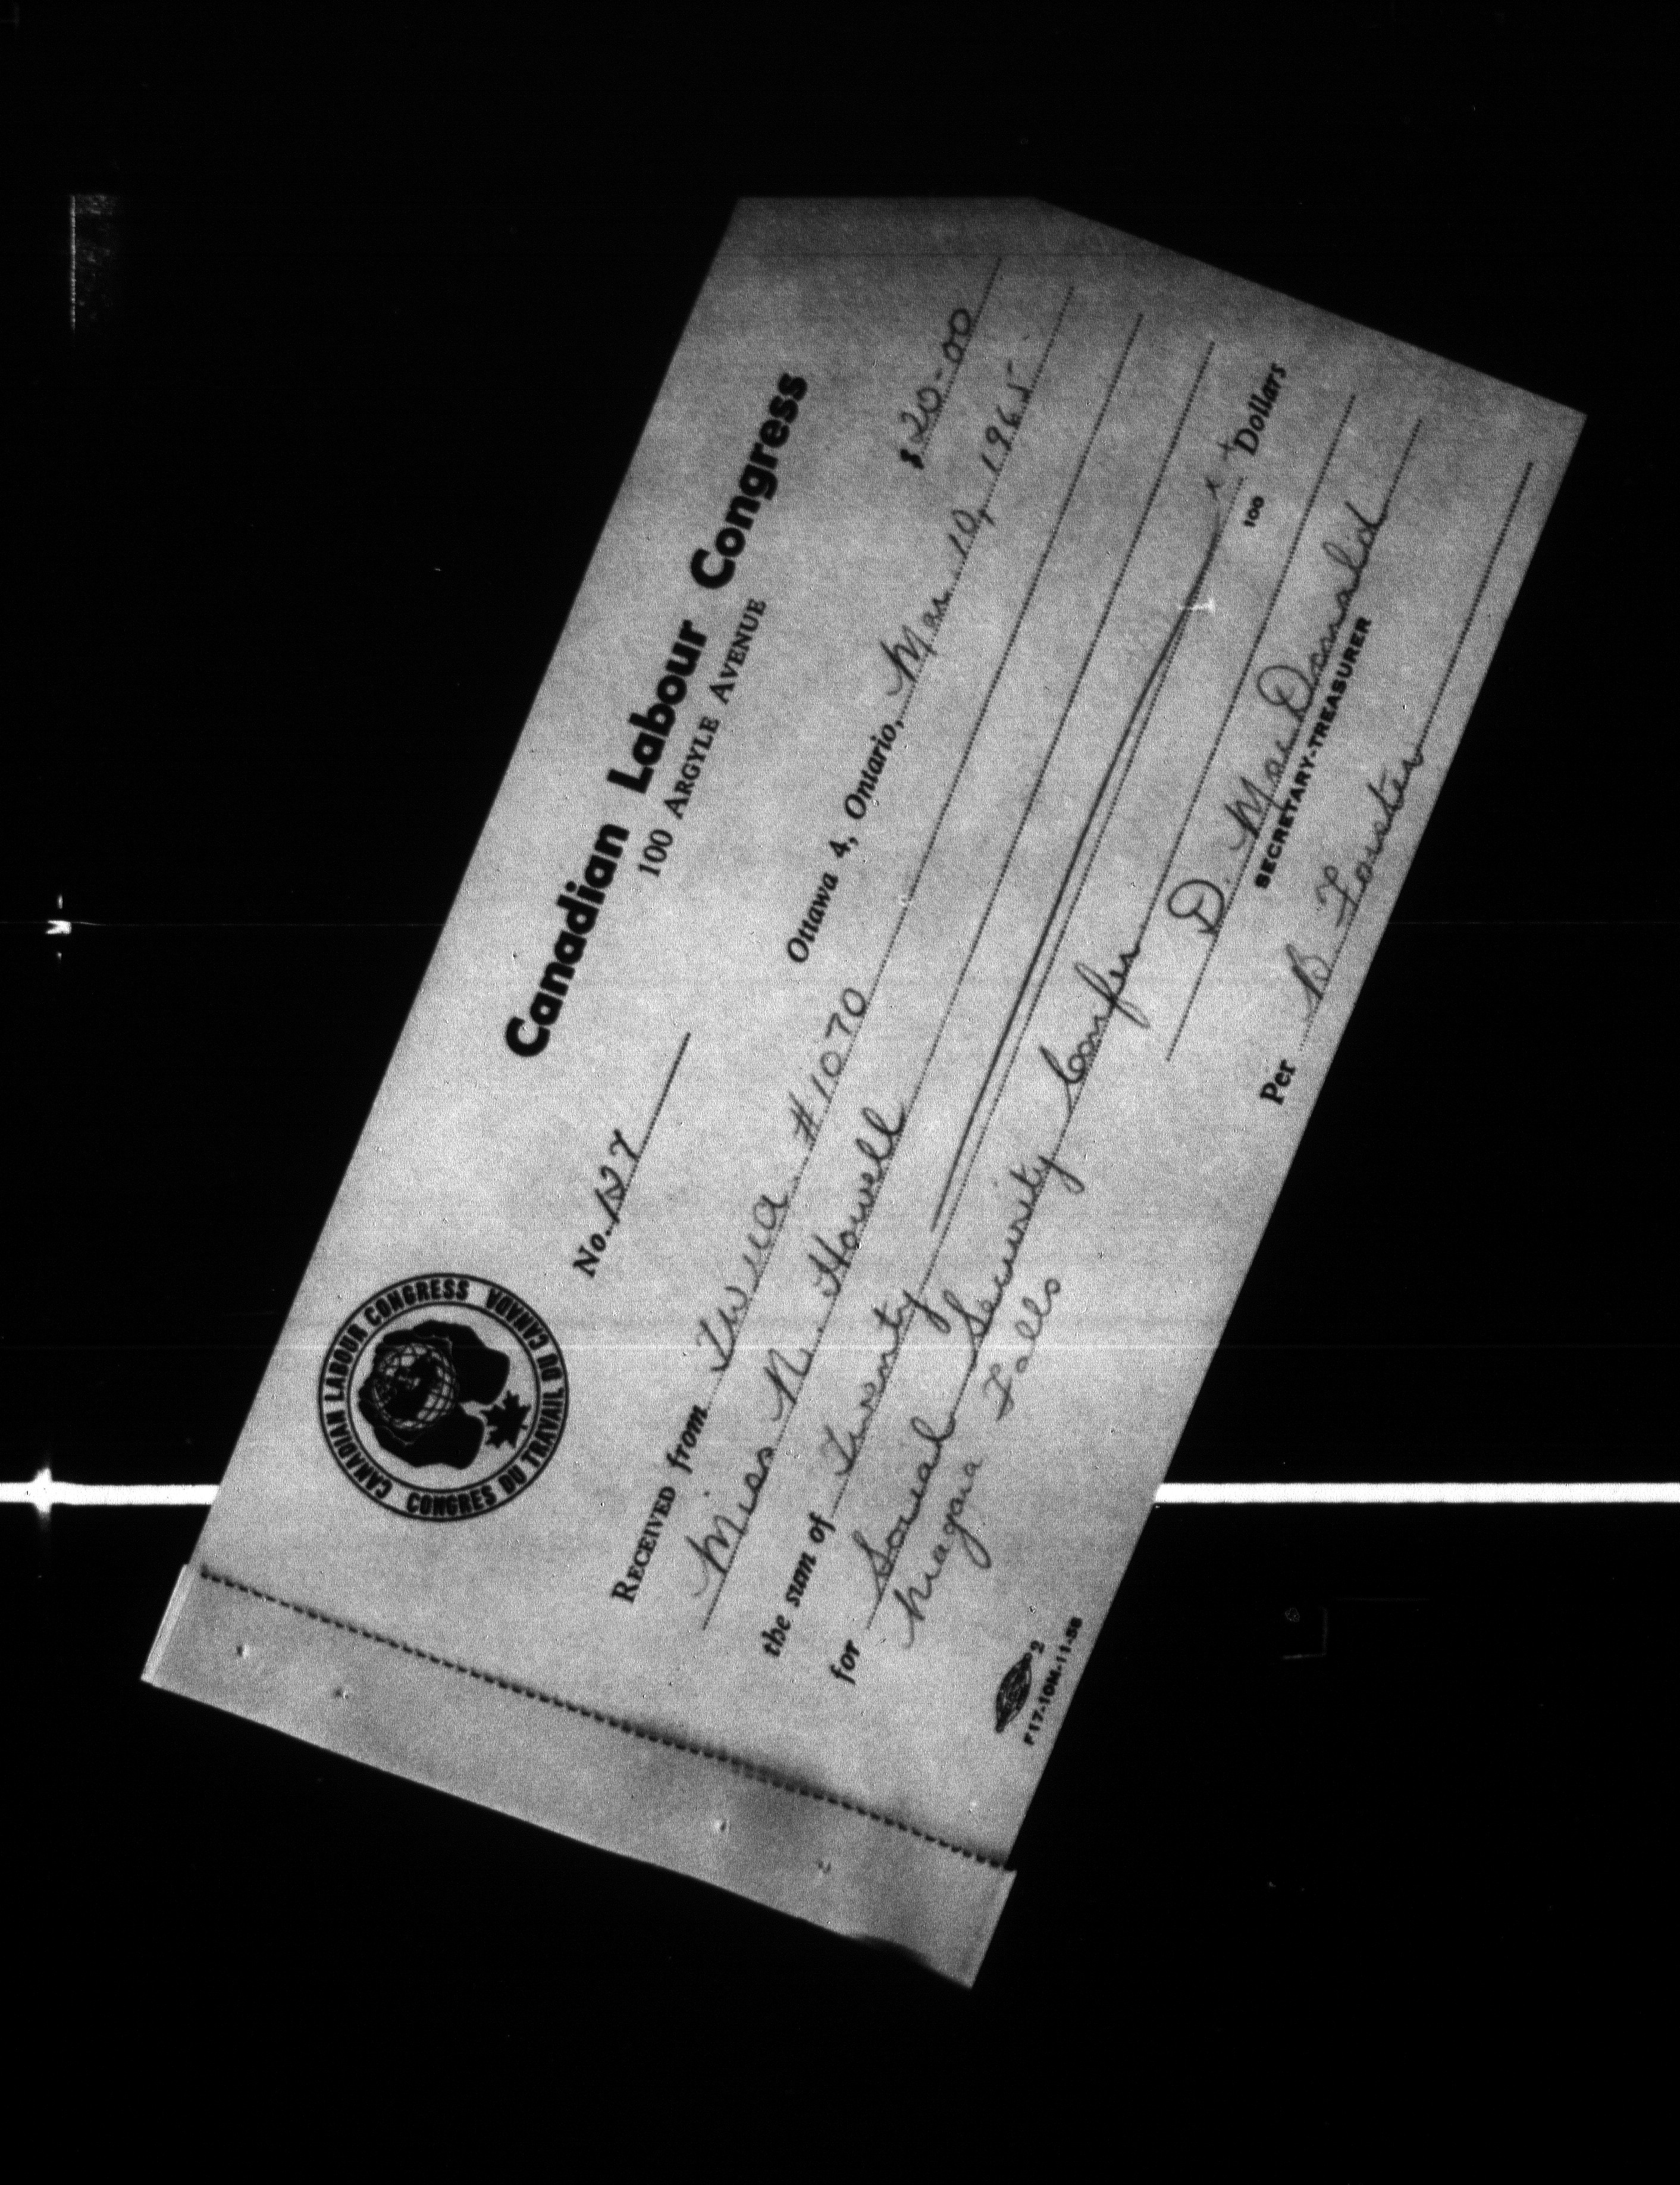 Canadian Labour Congress
100 ARGYLE AVENUE
CANADIAN LABOUR CONGRESS
CONGRES DU TRAVAIL DU CANADA
No. 127
$20-00
Ottawa 4, Ontario, Mar. 10, 1965.
RECEIVED from #1070
Miss N. Howell
the sum of Twenty xx/100 Dollars
for Social Security Confer
Niagara Falls
D. MacDonald
SECRETARY-TREASURER
Per B. Foster
2
F17-10M-11-58